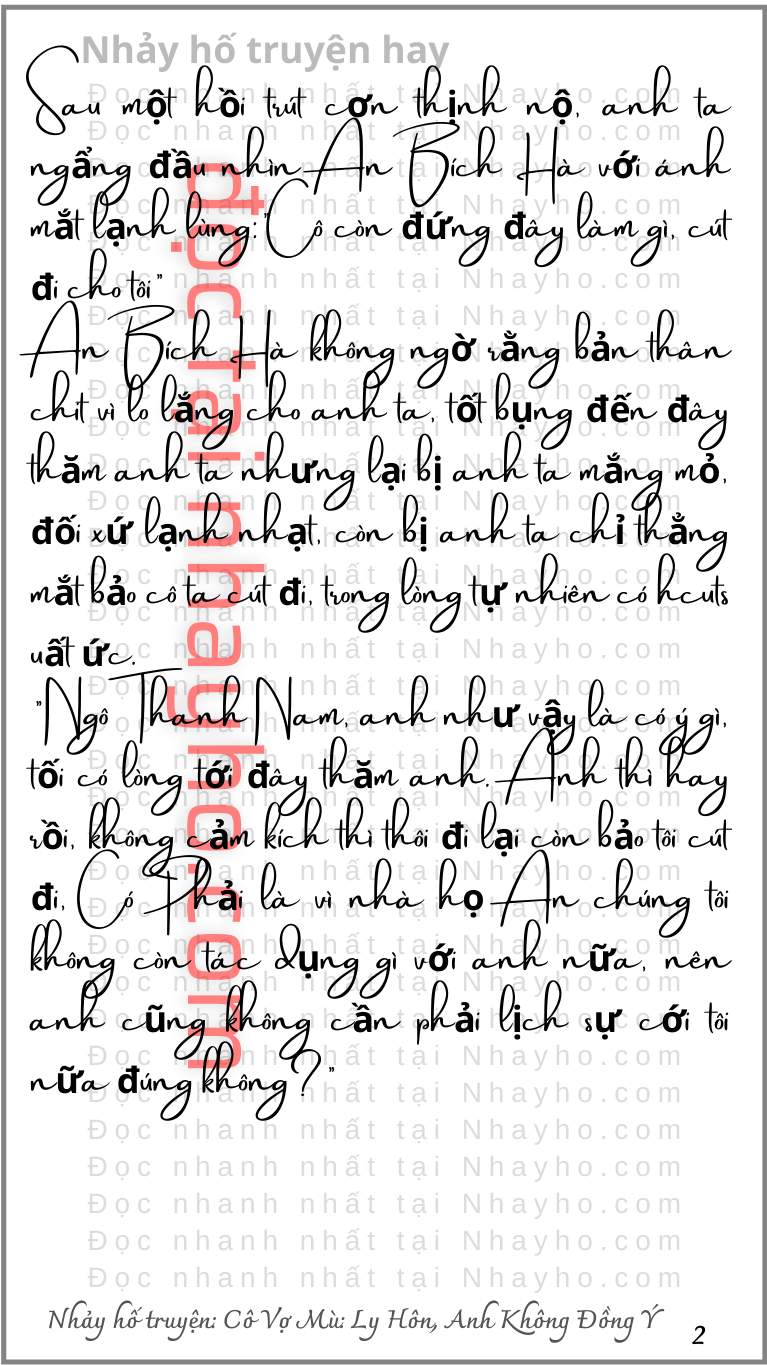 Nhảy hố truyện hay
Sau một hồi trút cơn thịnh nộ, anh ta
ngẩng đầu nhìn An Bích Hà với ánh
mắt lạnh lùng:"Cô còn đứng đây làm gì, cút
đi cho tôi"
An Bích Hà không ngờ rằng bản thân
chit vì lo lắng cho anh ta, tốt bụng đến đây
thăm anh ta nhưng lại bị anh ta mắng mỏ,
đối xứ lạnh nhạt, còn bị anh ta chỉ thẳng
mắt bảo cô ta cút đi, trong lòng tự nhiên có hcuts
uất ức.
"Ngô Thanh Nam, anh như vậy là có ý gì,
tối có lòng tới đây thăm anh. Anh thì hay
rồi, không cảm kích thì thôi đi lại còn bảo tôi cút
đi, Có Phải là vì nhà họ An chúng tôi
không còn tác dụng gì với anh nữa, nên
anh cũng không cần phải lịch sự cới tôi
nữa đúng không?"
đọc tại nhayho.com
Đọc nhanh nhất tại Nhayho.com
Đọc nhanh nhất tại Nhayho.com
Đọc nhanh nhất tại Nhayho.com
Đọc nhanh nhất tại Nhayho.com
Đọc nhanh nhất tại Nhayho.com
Nhảy hố truyện: Cô Vợ Mù: Ly Hôn, Anh Không Đồng Ý
2